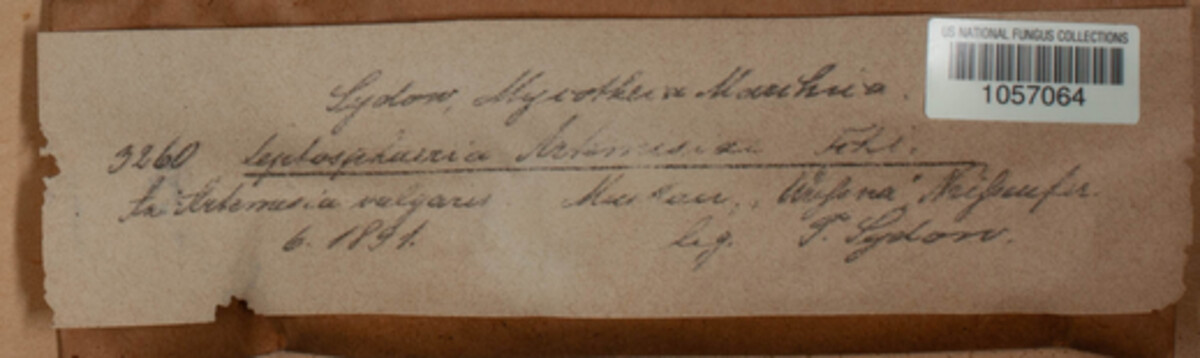 US NATIONAL FUNGUS COLLECTIONS
1057064
Sydow, Mycotheca Marchica.
3260 Leptosphaeria Artemisiae
In Artemisia vulgaris. Muskau,
6. 1891. leg. P. Sydow.